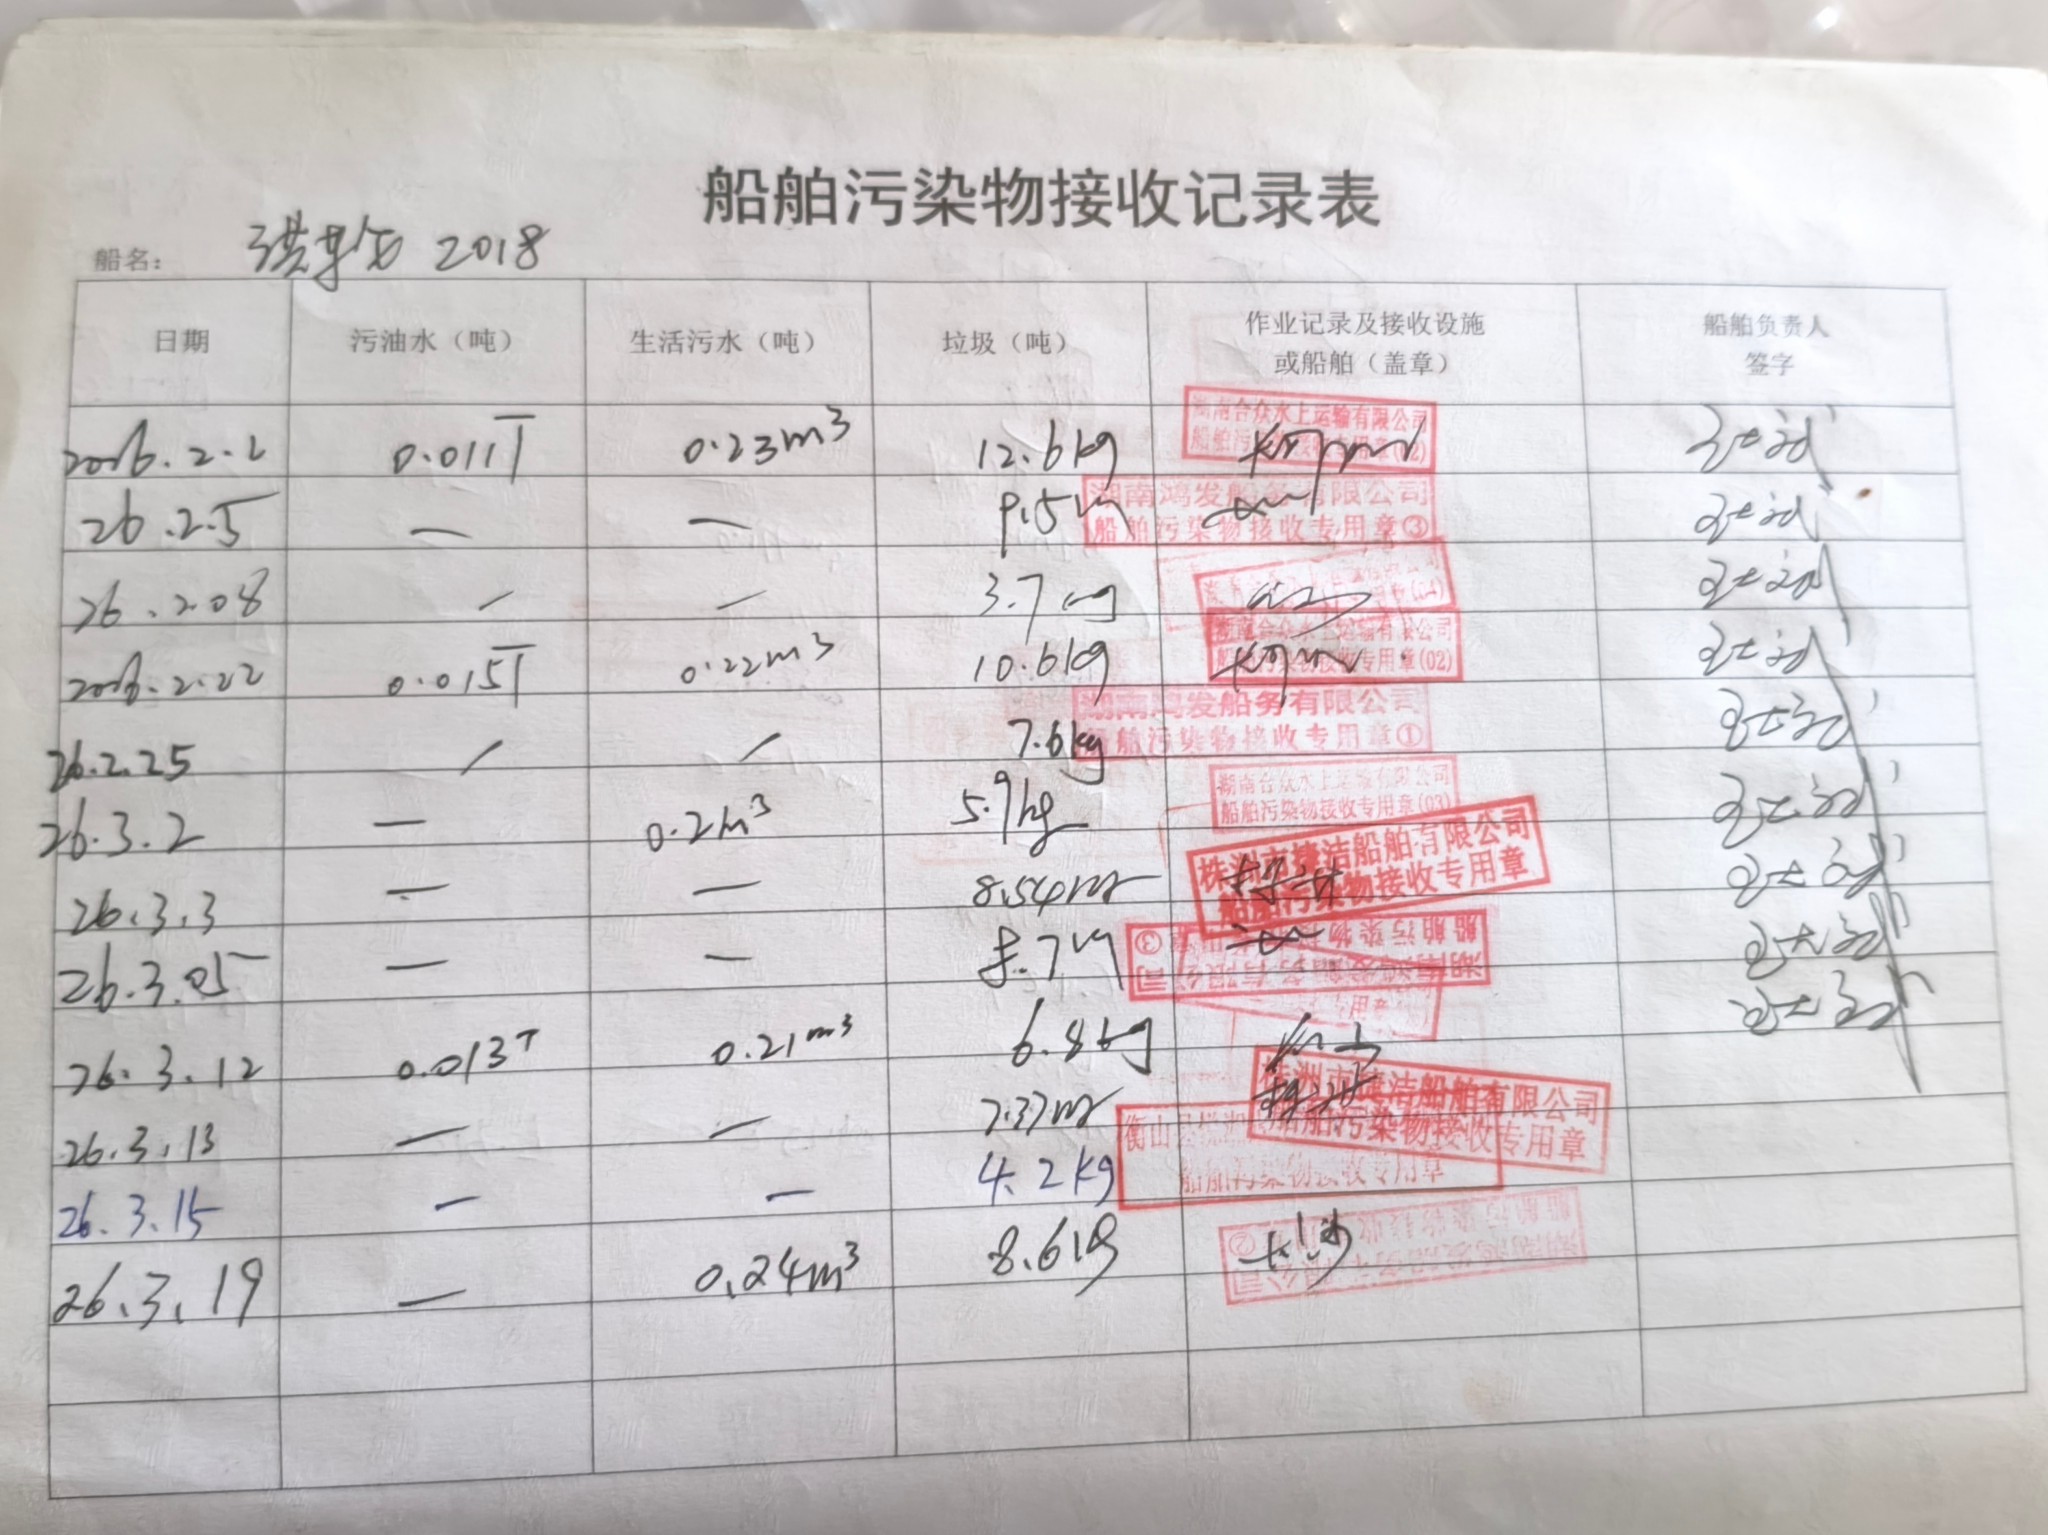 船舶污染物接收记录表
船名： 2018
日期 污油水（吨） 生活污水（吨） 垃圾（吨） 作业记录及接收设施 或船舶（盖章） 船舶负责人 签字
2026.2.2 0.011T 0.23m³ 12.6kg 湖南合众水上运输有限公司
26.2.5 — — 9.5kg 湖南鸿发船务有限公司 船舶污染物接收专用章③
26.2.08 / — 3.7kg
2026.2.22 0.015T 0.22m³ 10.6kg 湖南合众水上运输有限公司 船舶污染物接收专用章(02)
26.2.25 / / 7.6kg 湖南鸿发船务有限公司 船舶污染物接收专用章①
26.3.2 — 0.2m³ 5.9kg 湖南合众水上运输有限公司 船舶污染物接收专用章(03)
26.3.3 — — 8.54kg 株洲市捷洁船舶有限公司 船舶污染物接收专用章
26.3.05 — — 8.7kg
26.3.12 0.013T 0.21m³ 6.8kg
26.3.13 — — 7.37kg 株洲市捷洁船舶有限公司 船舶污染物接收专用章
26.3.15 — — 4.2kg 船舶污染物接收专用章
26.3.19 — 0.24m³ 8.6kg 长沙